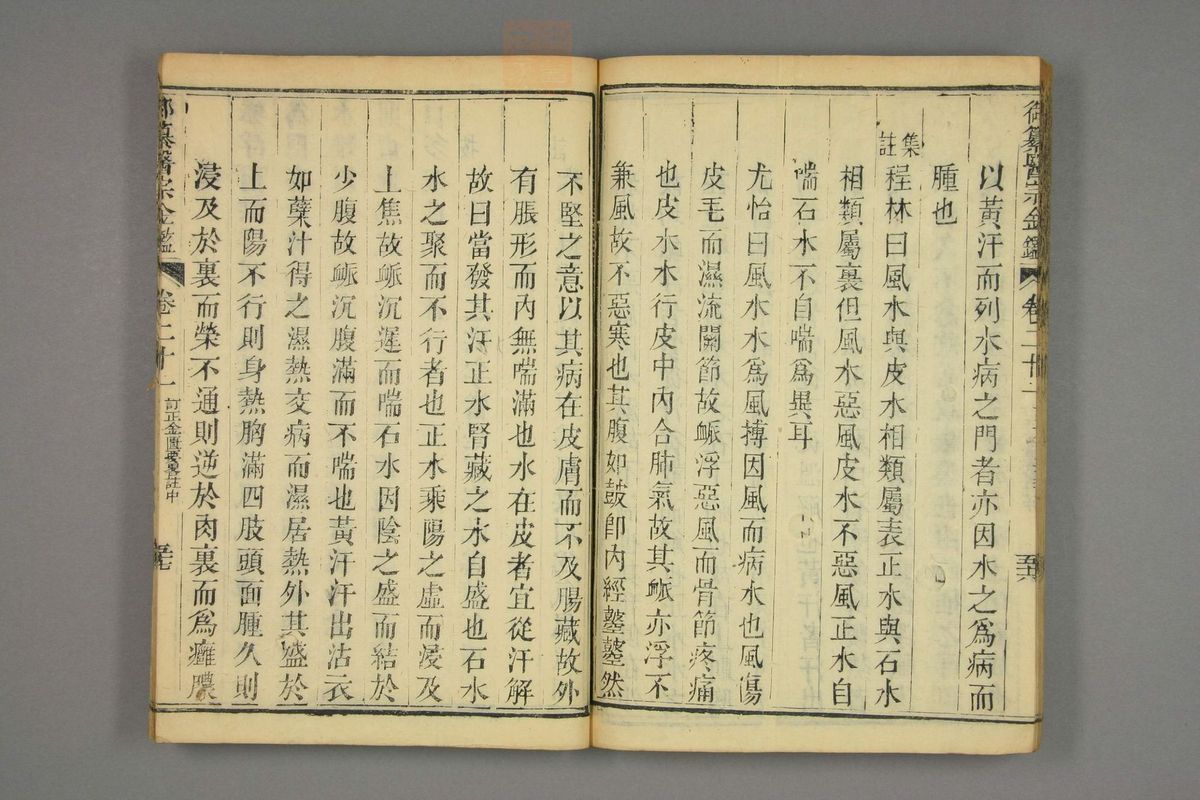 御纂醫宗金鑑
卷二十一
以黃汗而列水病之門者亦因水之爲病而
腫也
集註
程林曰風水與皮水相類屬表正水與石水
相類屬裏但風水惡風皮水不惡風正水自
喘石水不自喘爲異耳
尤怡曰風水水爲風搏因風而病水也風傷
皮毛而濕流關節故脈浮惡風而骨節疼痛
也皮水水行皮中內合肺氣故其脈亦浮不
兼風故不惡寒也其腹如鼓卽內經𪔣𪔣然
不堅之意以其病在皮膚而不及腸藏故外
有脹形而內無喘滿也水在皮者宜從汗解
故曰當發其汗正水腎藏之水自盛也石水
水之聚而不行者也正水乘陽之虛而浸及
上焦故脈沉遲而喘石水因陰之盛而結於
少腹故脈沉腹滿而不喘也黃汗汗出沾衣
如蘗汁得之濕熱交病而濕居熱外其盛於
上而陽不行則身熱胸滿四肢頭面腫久則
浸及於裏而榮不通則逆於肉裏而爲癰膿
御纂醫宗金鑑
卷二十一
訂正金匱要畧註中